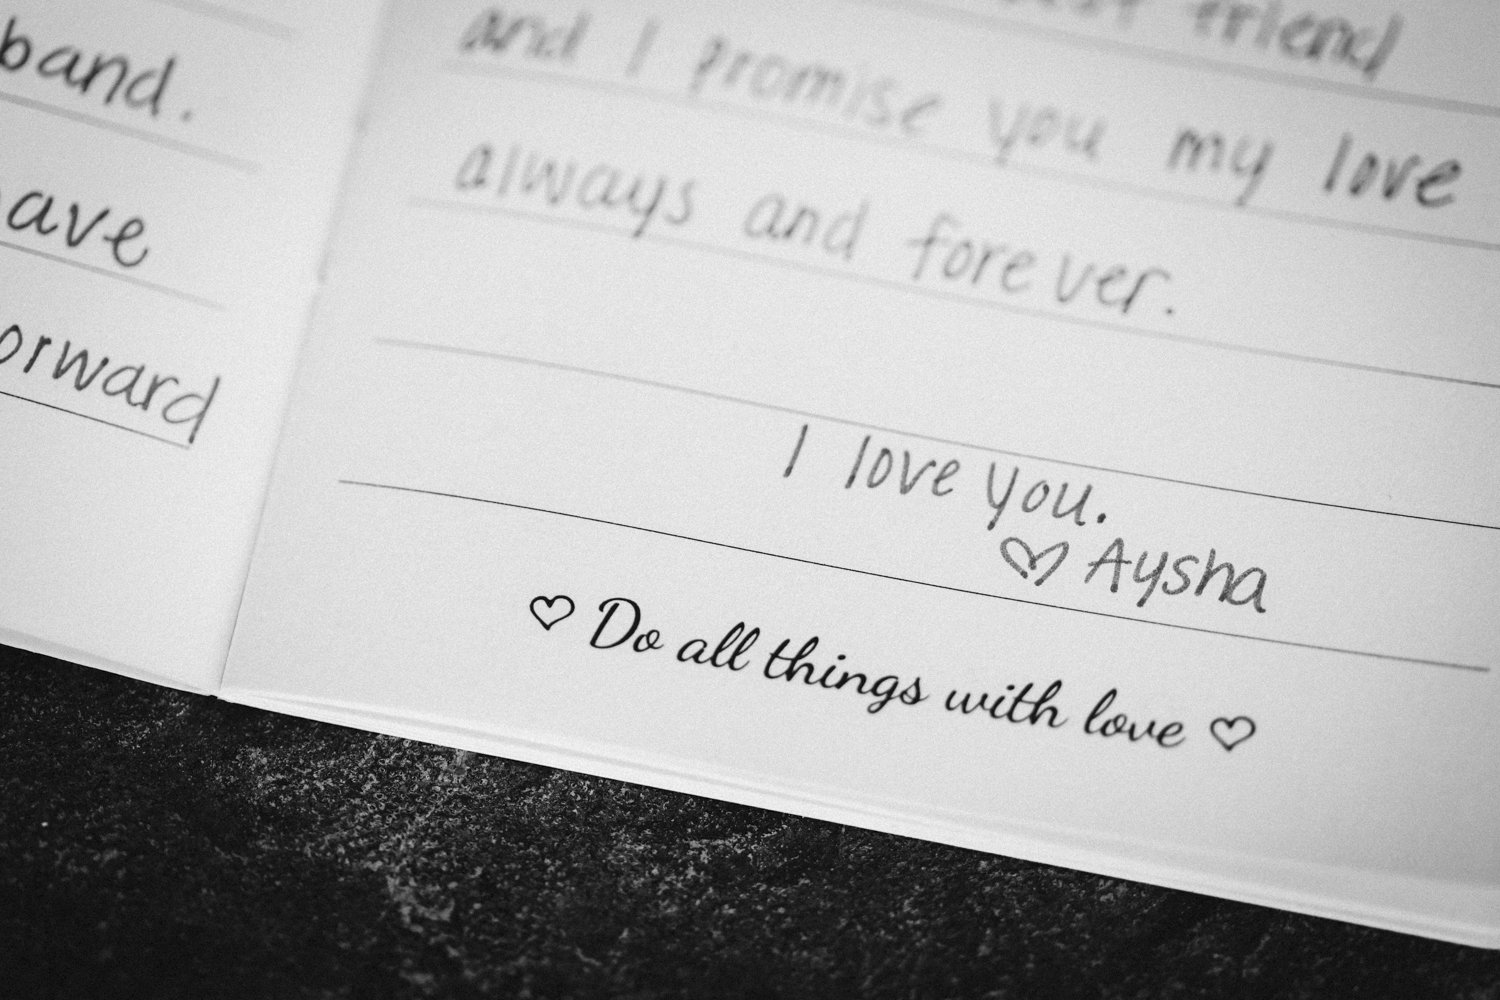 band.
ave
orward
friend
and I promise you my love
always and forever.
I love you.
♡ Aysha
♡ Do all things with love ♡